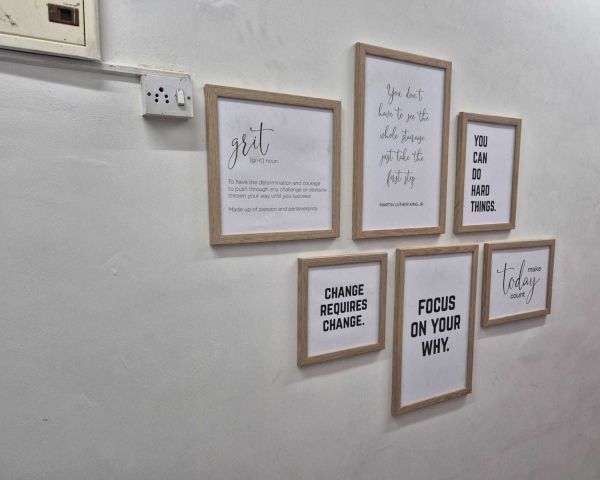 grit
[gr-it] noun
To have the determination and courage
to push through any challenge or obstacle
thrown your way until you succeed
Made up of passion and perseverance
You don't
have to see the
whole staircase
just take the
first step
MARTIN LUTHER KING, JR.
YOU
CAN
DO
HARD
THINGS.
CHANGE
REQUIRES
CHANGE.
FOCUS
ON YOUR
WHY.
make
today
count